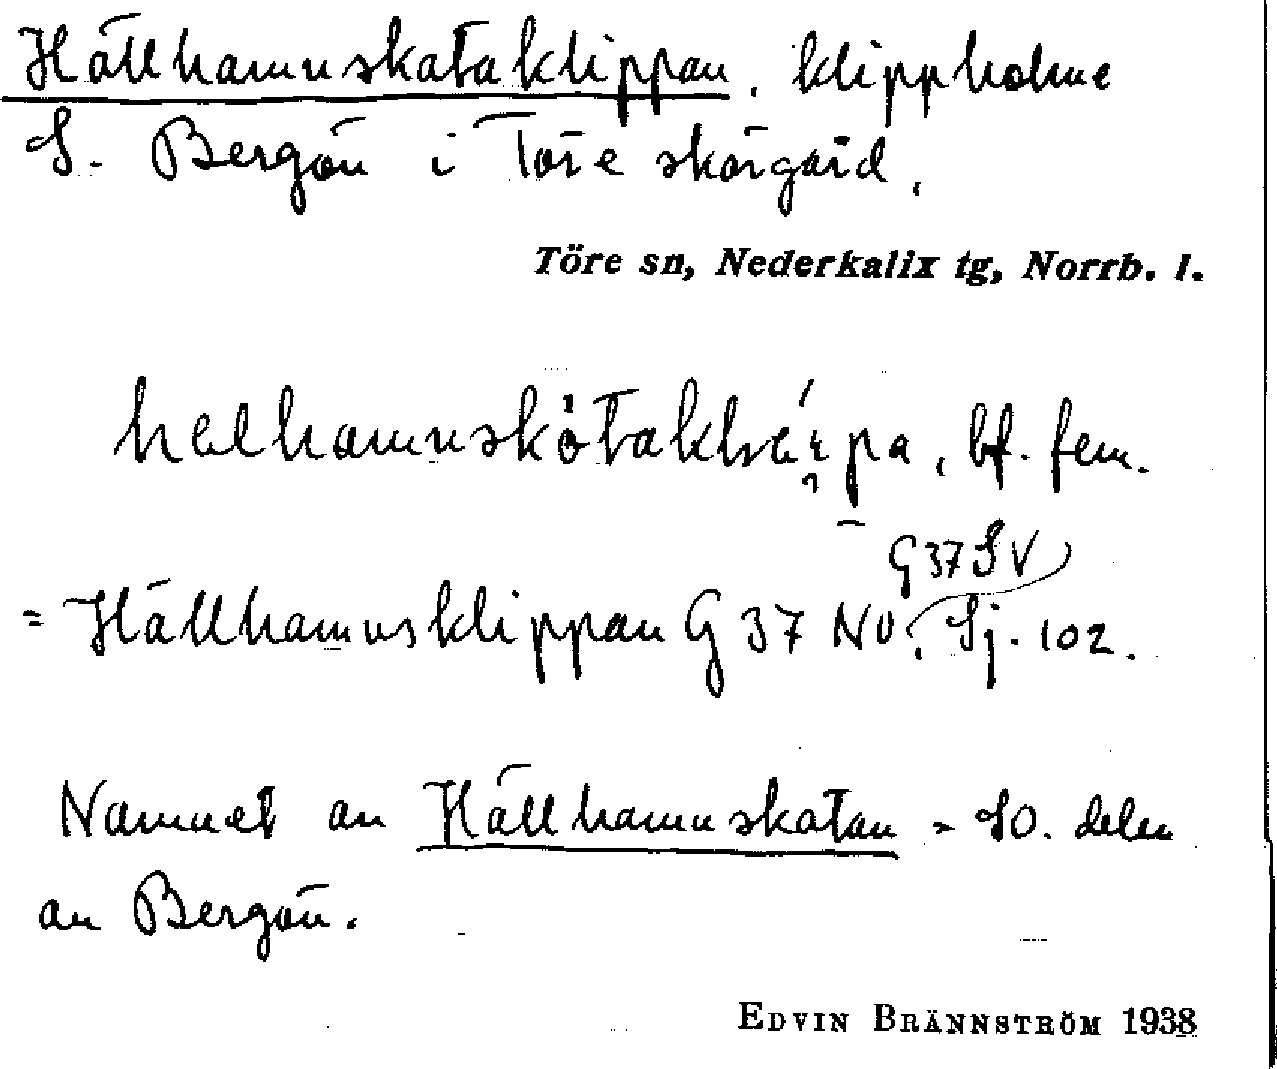 Hällhamnskataklippan, klippholme
S. Bergön i Töre skärgård,
Töre sn, Nederkalix tg, Norrb. l.
bf. fem.
G 37 SV
= Hällhamnsklippan G 37 NV, Sj. 102.
Namnet av Hällhamnskatan = SO. delen
av Bergön.
EDVIN BRÄNNSTRÖM 1938